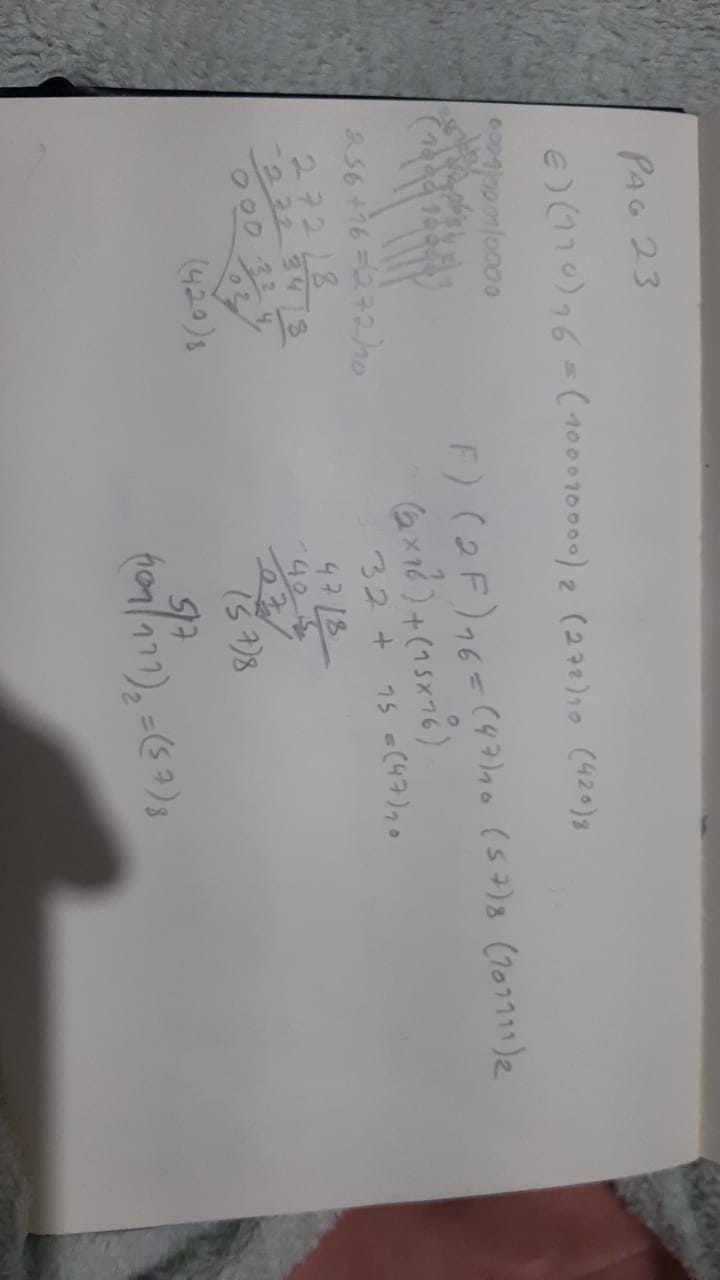 PAG 23
E) (110)16 = (100010000)2 (272)10 (420)8
0001/0001/0000
256 + 16 = (272)10
272 | 8
-272 34 | 8
000 32 4
02
(420)8
F) (2F)16 = (47)10 (57)8 (101111)2
(2x16¹) + (15x16⁰)
32 + 15 = (47)10
47 | 8
-40 5
07
(57)8
5/7
(101/111)2 = (57)8